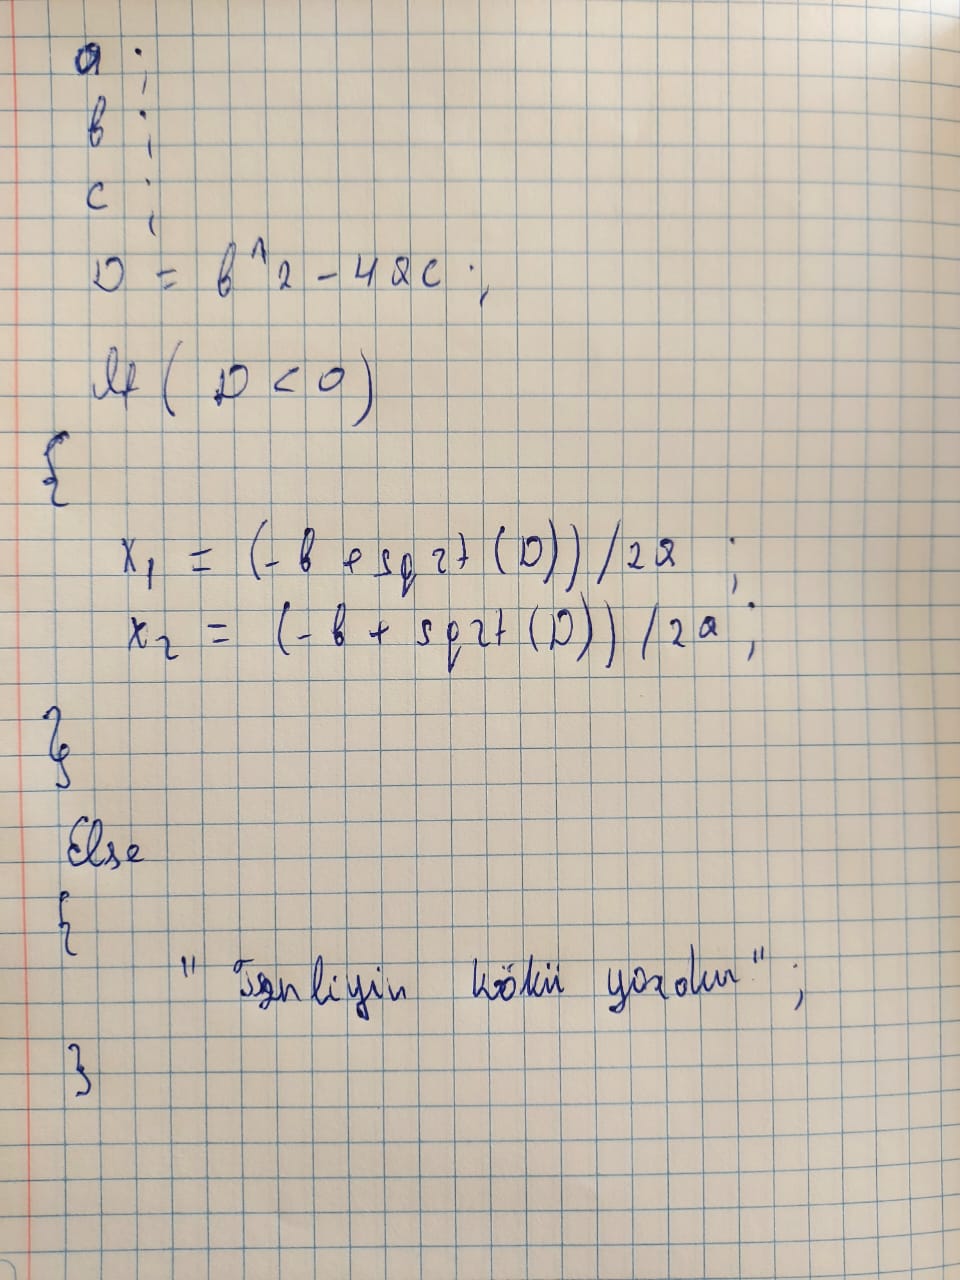 a ;
b ;
c ;
D = b^2 - 4ac ;
If ( D < 0 )
{
x1 = (-b + sqrt (D)) / 2a ;
x2 = (-b + sqrt (D)) / 2a ;
}
Else
{
" Tənliyin kökü yoxdur" ;
}